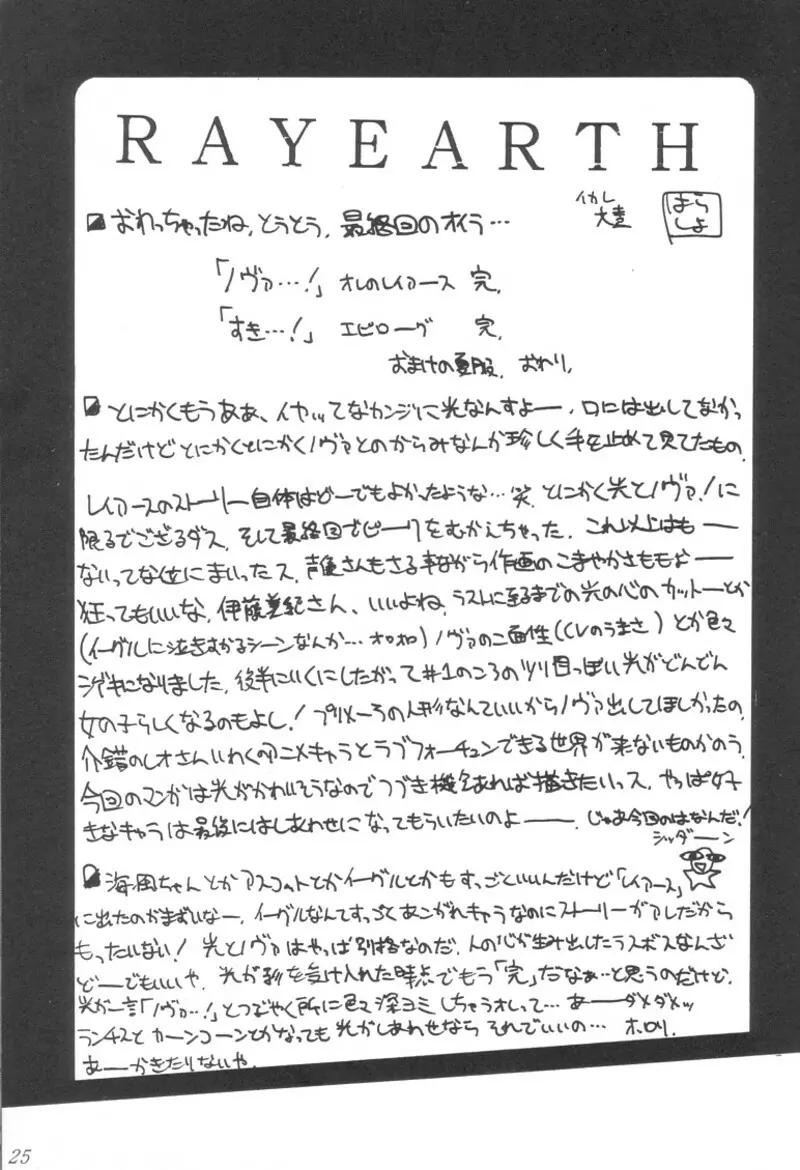 RAYEARTH
イカレ
大王
はら
しょ
おわっちゃったね、とうとう、最終回のオイラ…
「ノヴァ…!」オレのレイアース 完.
「すき…!」エピローグ 完.
おまけの夏服. おわり.
とにかくもうああ、イヤッてなカンジに光なんすよー. 口には出してなかっ
たんだけどとにかくとにかくノヴァとのからみなんか珍しく手を止めて見てたもの.
レイアースのストーリー自体はどーでもよかったような…笑. とにかく光とノヴァ!に
限るでござるダス. そして最終回でピークをむかえちゃった. これ以上はもー
ないってな位にまいったス. 声優さんもさる事ながら作画のこまやかさももぉー
狂ってもいいな. 伊藤美紀さん、いいよね. ラストに至るまでの光の心のカットーとか
(イーグルに泣きすがるシーンなんか…オロオロ)ノヴァの二面性(CVのうまさ)とか色々
シゲキになりました. 後半にいくにしたがって#1のころのツリ目っぽい光がどんどん
女の子らしくなるのもよし! プリメーラの人形なんていいからノヴァ出してほしかったの.
介錯のレオさんいわくのアニメキャラとラブフォーチュンできる世界が来ないものかのう.
今回のマンガは光がかわいそうなのでつづき機会あれば描きたいっス. やっぱ好
きなキャラは最後にはしあわせになってもらいたいのよー. じゃあ今回のはなんだ!
ジッダーン
海風ちゃんとかアスコットとかイーグルとかもすっごといいんだけど「レイアース」
に出たのがまずいなー. イーグルなんてすっごくあこがれキャラなのにストーリーがアレだから
もったいない! 光とノヴァはやっぱ別格なのだ. 人の心が生み出したラスボスなんざ
どーでもいいや. 光が影を受け入れた時点でもう「完」だなぁ…と思うのだけど.
光が一言「ノヴァ…!」とつぶやく所に色々深ヨミしちゃうオレって… あーダメダメッ
ランチスとカーンコーンとかなっても光がしあわせなら それでいいの… ホロリ.
あーかきたりないや.
25